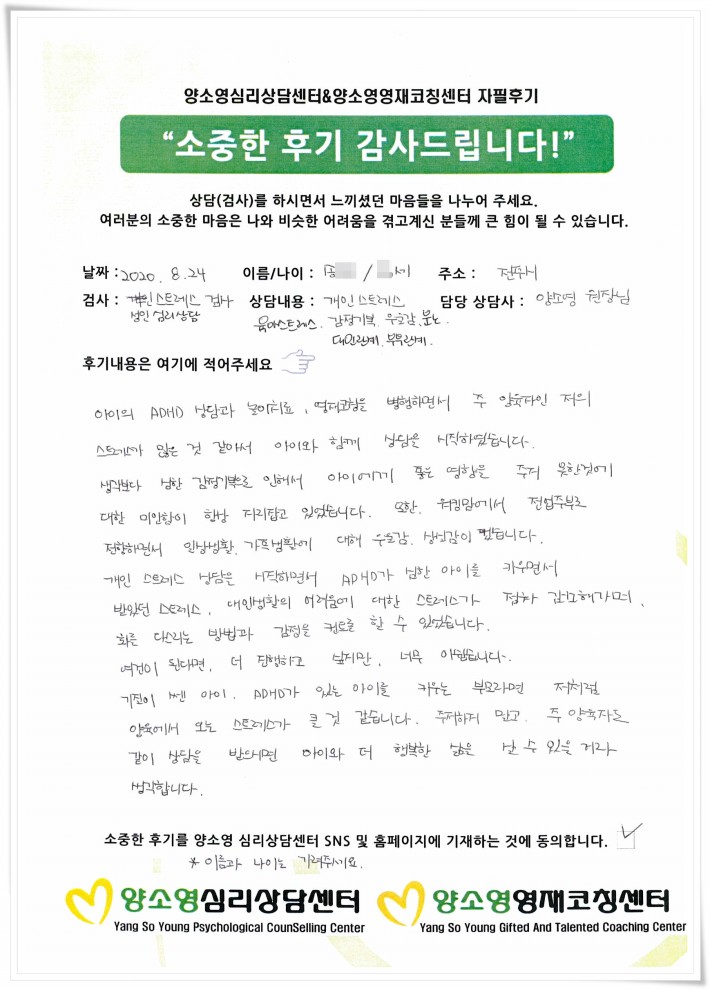 양소영심리상담센터&양소영영재코칭센터 자필후기
“소중한 후기 감사드립니다!”
상담(검사)를 하시면서 느끼셨던 마음들을 나누어 주세요.
여러분의 소중한 마음은 나와 비슷한 어려움을 겪고계신 분들께 큰 힘이 될 수 있습니다.
날짜 : 2020. 8.24 이름/나이 : / 세 주소 : 전주시
검사 : 개인스트레스 검사 상담내용 : 개인스트레스 담당 상담사 : 양소영 원장님
성인 심리상담 육아스트레스. 감정기복. 우울감. 분노.
대인관계. 부부관계.
후기내용은 여기에 적어주세요
아이의 ADHD 상담과 놀이치료, 영재코칭을 병행하면서 주 양육자인 저의
스트레스가 많은 것 같아서 아이와 함께 상담을 시작하였습니다.
생각보다 심한 감정기복으로 인해서 아이에게 좋은 영향을 주지 못한것에
대한 미안함이 항상 자리잡고 있었습니다. 또한, 워킹맘에서 전업주부로
전향하면서 일상생활, 가족생활에 대해 우울감. 상실감이 컸습니다.
개인 스트레스 상담을 시작하면서 ADHD가 심한 아이를 키우면서
받았던 스트레스, 대인생활의 어려움에 대한 스트레스가 점차 감소해가며,
화를 다스리는 방법과 감정을 컨트롤 할 수 있었습니다.
여건이 된다면, 더 진행하고 싶지만, 너무 아쉽습니다.
기질이 쎈 아이. ADHD가 있는 아이를 키우는 부모라면 저처럼
양육에서 오는 스트레스가 클 것 같습니다. 주저하지 말고. 주 양육자도
같이 상담을 받으시면 아이와 더 행복한 삶을 살 수 있을 거라
생각합니다.
소중한 후기를 양소영 심리상담센터 SNS 및 홈페이지에 기재하는 것에 동의합니다.
* 이름과 나이는 가려주세요.
양소영심리상담센터 양소영영재코칭센터
Yang So Young Psychological CounSelling Center Yang So Young Gifted And Talented Coaching Center